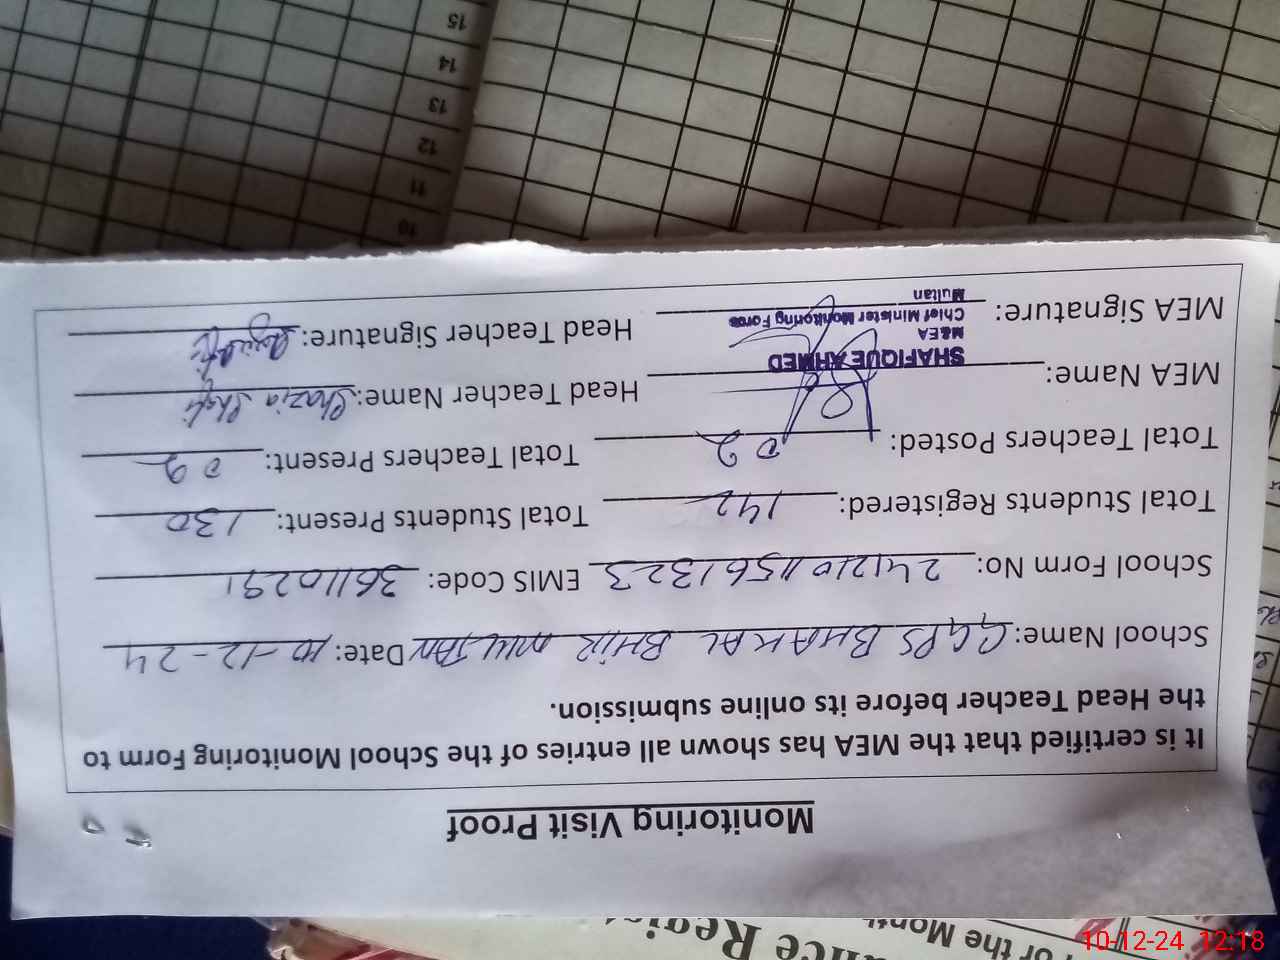 Monitoring Visit Proof
It is certified that the MEA has shown all entries of the School Monitoring Form to
the Head Teacher before its online submission.
School Name: GGPS BHAKAL BHIR MULTAN Date: 10-12-24
School Form No: 2412101561323 EMIS Code: 36110291
Total Students Registered: 142 Total Students Present: 130
Total Teachers Posted: 02 Total Teachers Present: 02
MEA Name: Head Teacher Name: Shazia Shafi
SHAFIQUE AHMED
M&EA
Chief Minister Monitoring Force
Multan
MEA Signature: Head Teacher Signature:
10
11
12
13
14
15
For the Month
10-12-24 12:18